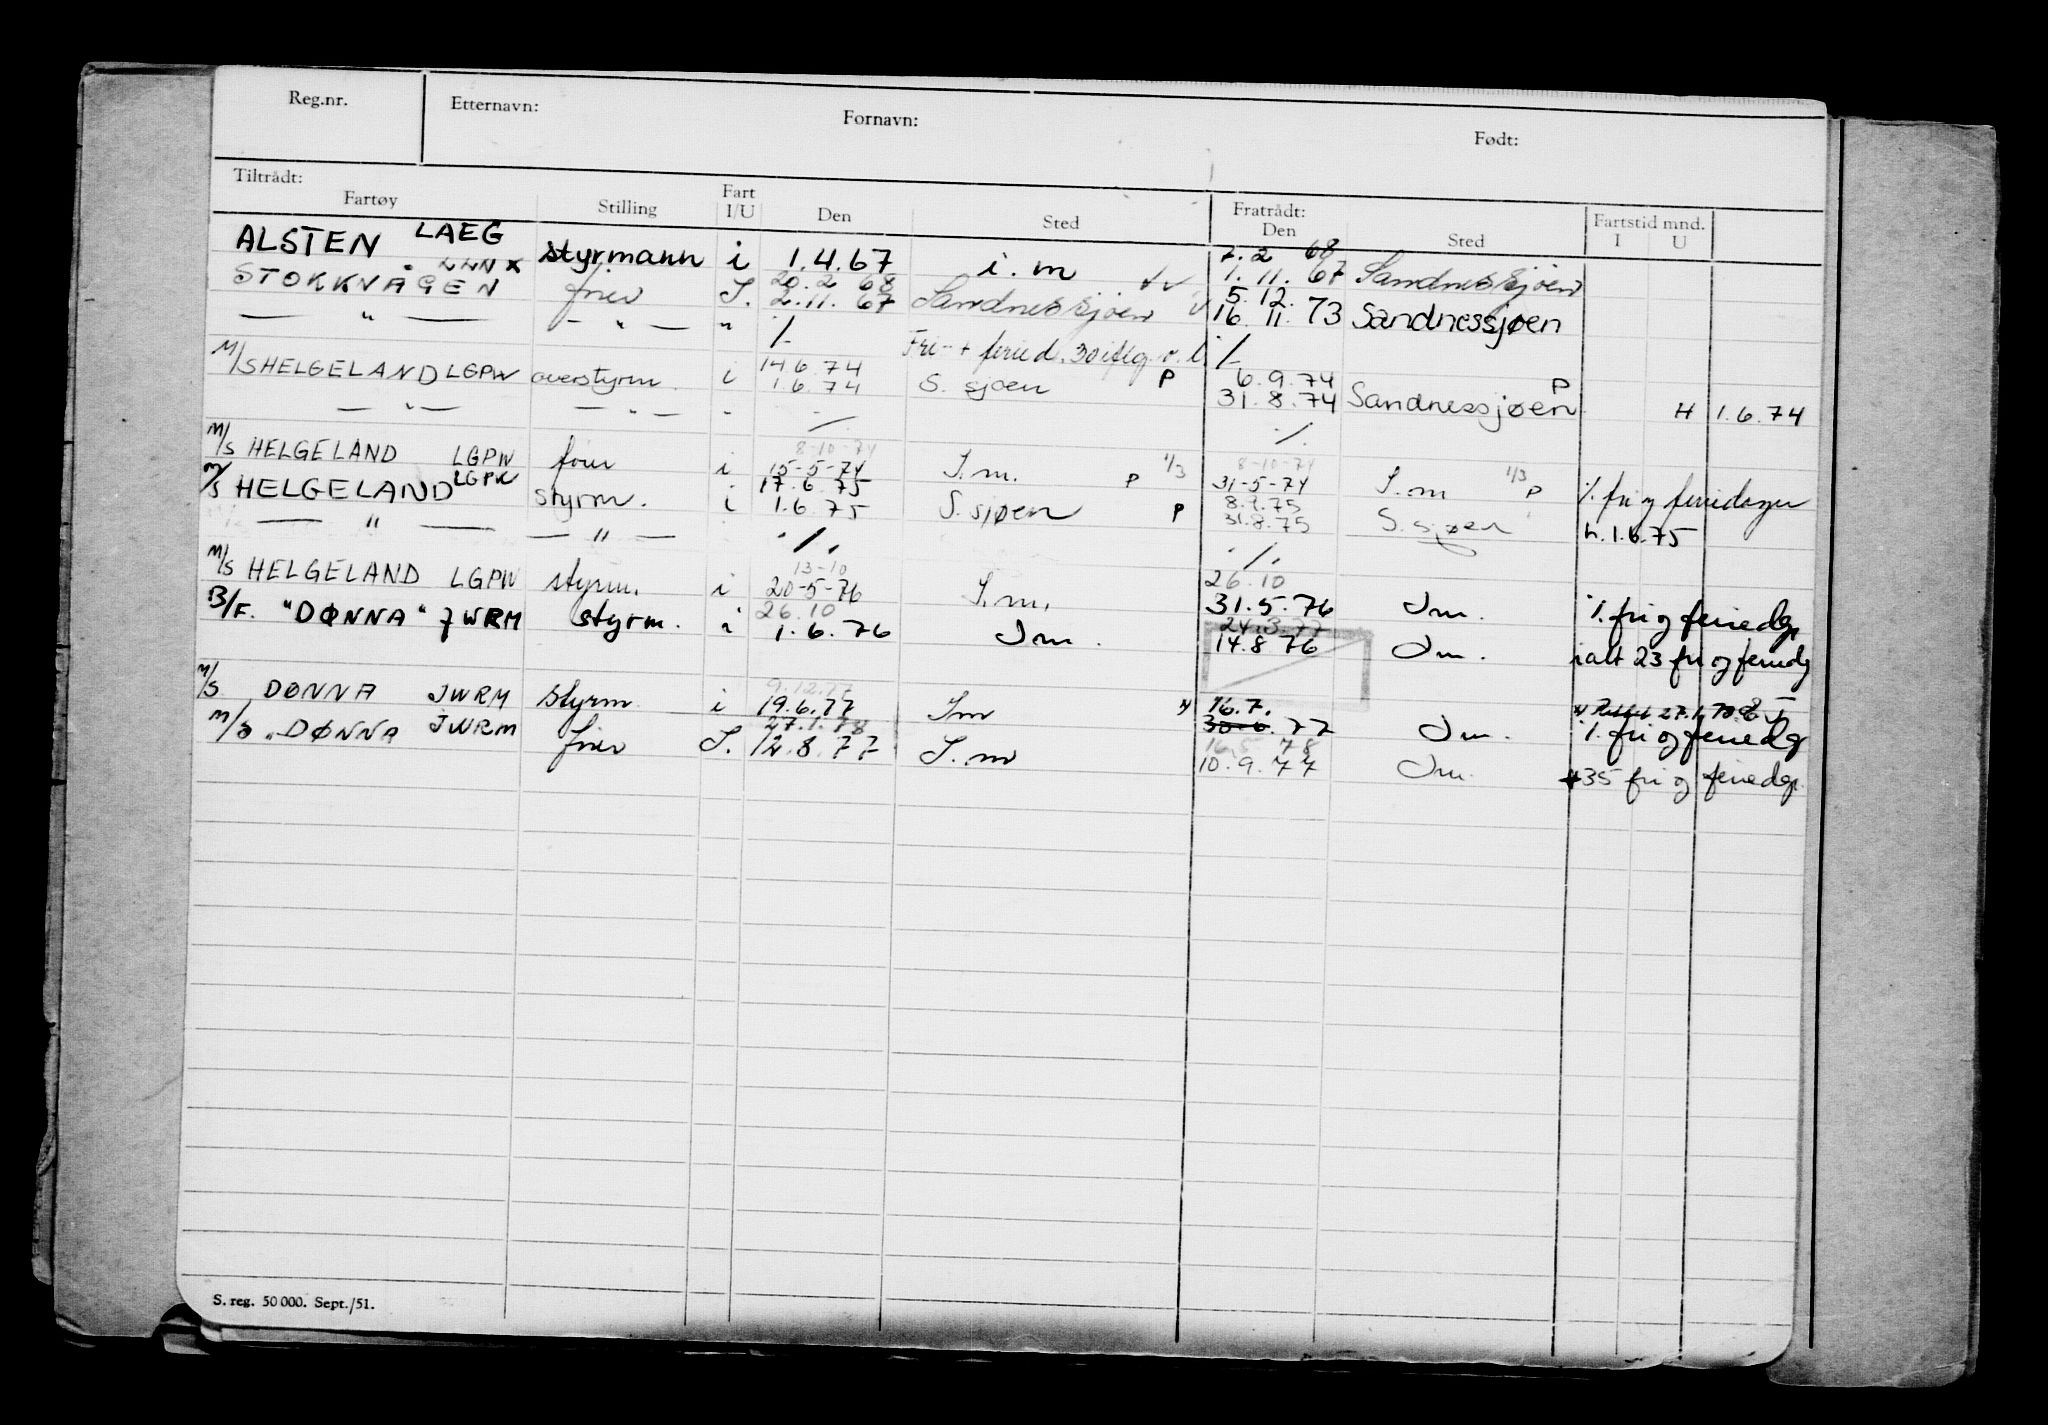 Reg.nr. Etternavn: Fornavn: Født:
Tiltrådt: Fratrådt: Fartstid mnd.
Fartøy Stilling Fart I/U Den Sted Den Sted I U
ALSTEN LAEG styrmann i 1.4.67 i.m 7.2 68
STOKKVÅGEN 20.2 68 1.11.67 Sandnessjøen
I. 2.11.67 Sandnessjøen 5.12.
— " — — " — " 16.11.73 Sandnessjøen
·/- Fri- + ·/-
M/S HELGELAND LGPW overstyrm. i 14.6.74 6.9.74 P
1.6.74 S. sjøen P 31.8.74 Sandnessjøen H 1.6.74
— " — — " — " ·/. ·/.
8-10-74 8-10-74
M/S HELGELAND LGPW i 15-5-74 I.m. P 1/3 31-5-74 I.m 1/3 P ·/. fri og feriedager
M/S HELGELAND LGPW styrm. i 17.6.75 8.9.75
1.6.75 S. sjøen P 31.8.75 S. sjøen H. 1.6.75
— " — — " — ·/. ·/.
13-10 26.10
M/S HELGELAND LGPW styrm. i 20-5-76 I.m. 31.5.76 Im. ·/. fri og feriedg.
26.10 24.3.77
B/F. "DØNNA" JWRM styrm. i 1.6.76 Im. 14.8 76 Im. ialt 23 fri og feriedg
9.12.77 16.7.
M/S DØNNA JWRM styrm i 19.6.77 Im 30.6.77 Im. ·/. fri og feriedg
27.1.78 16.5 78
M/S "DØNNA JWRM I. 12.8.77 I.m 10.9.77 Im. +35 fri og feriedg.
S. reg. 50 000. Sept./51.